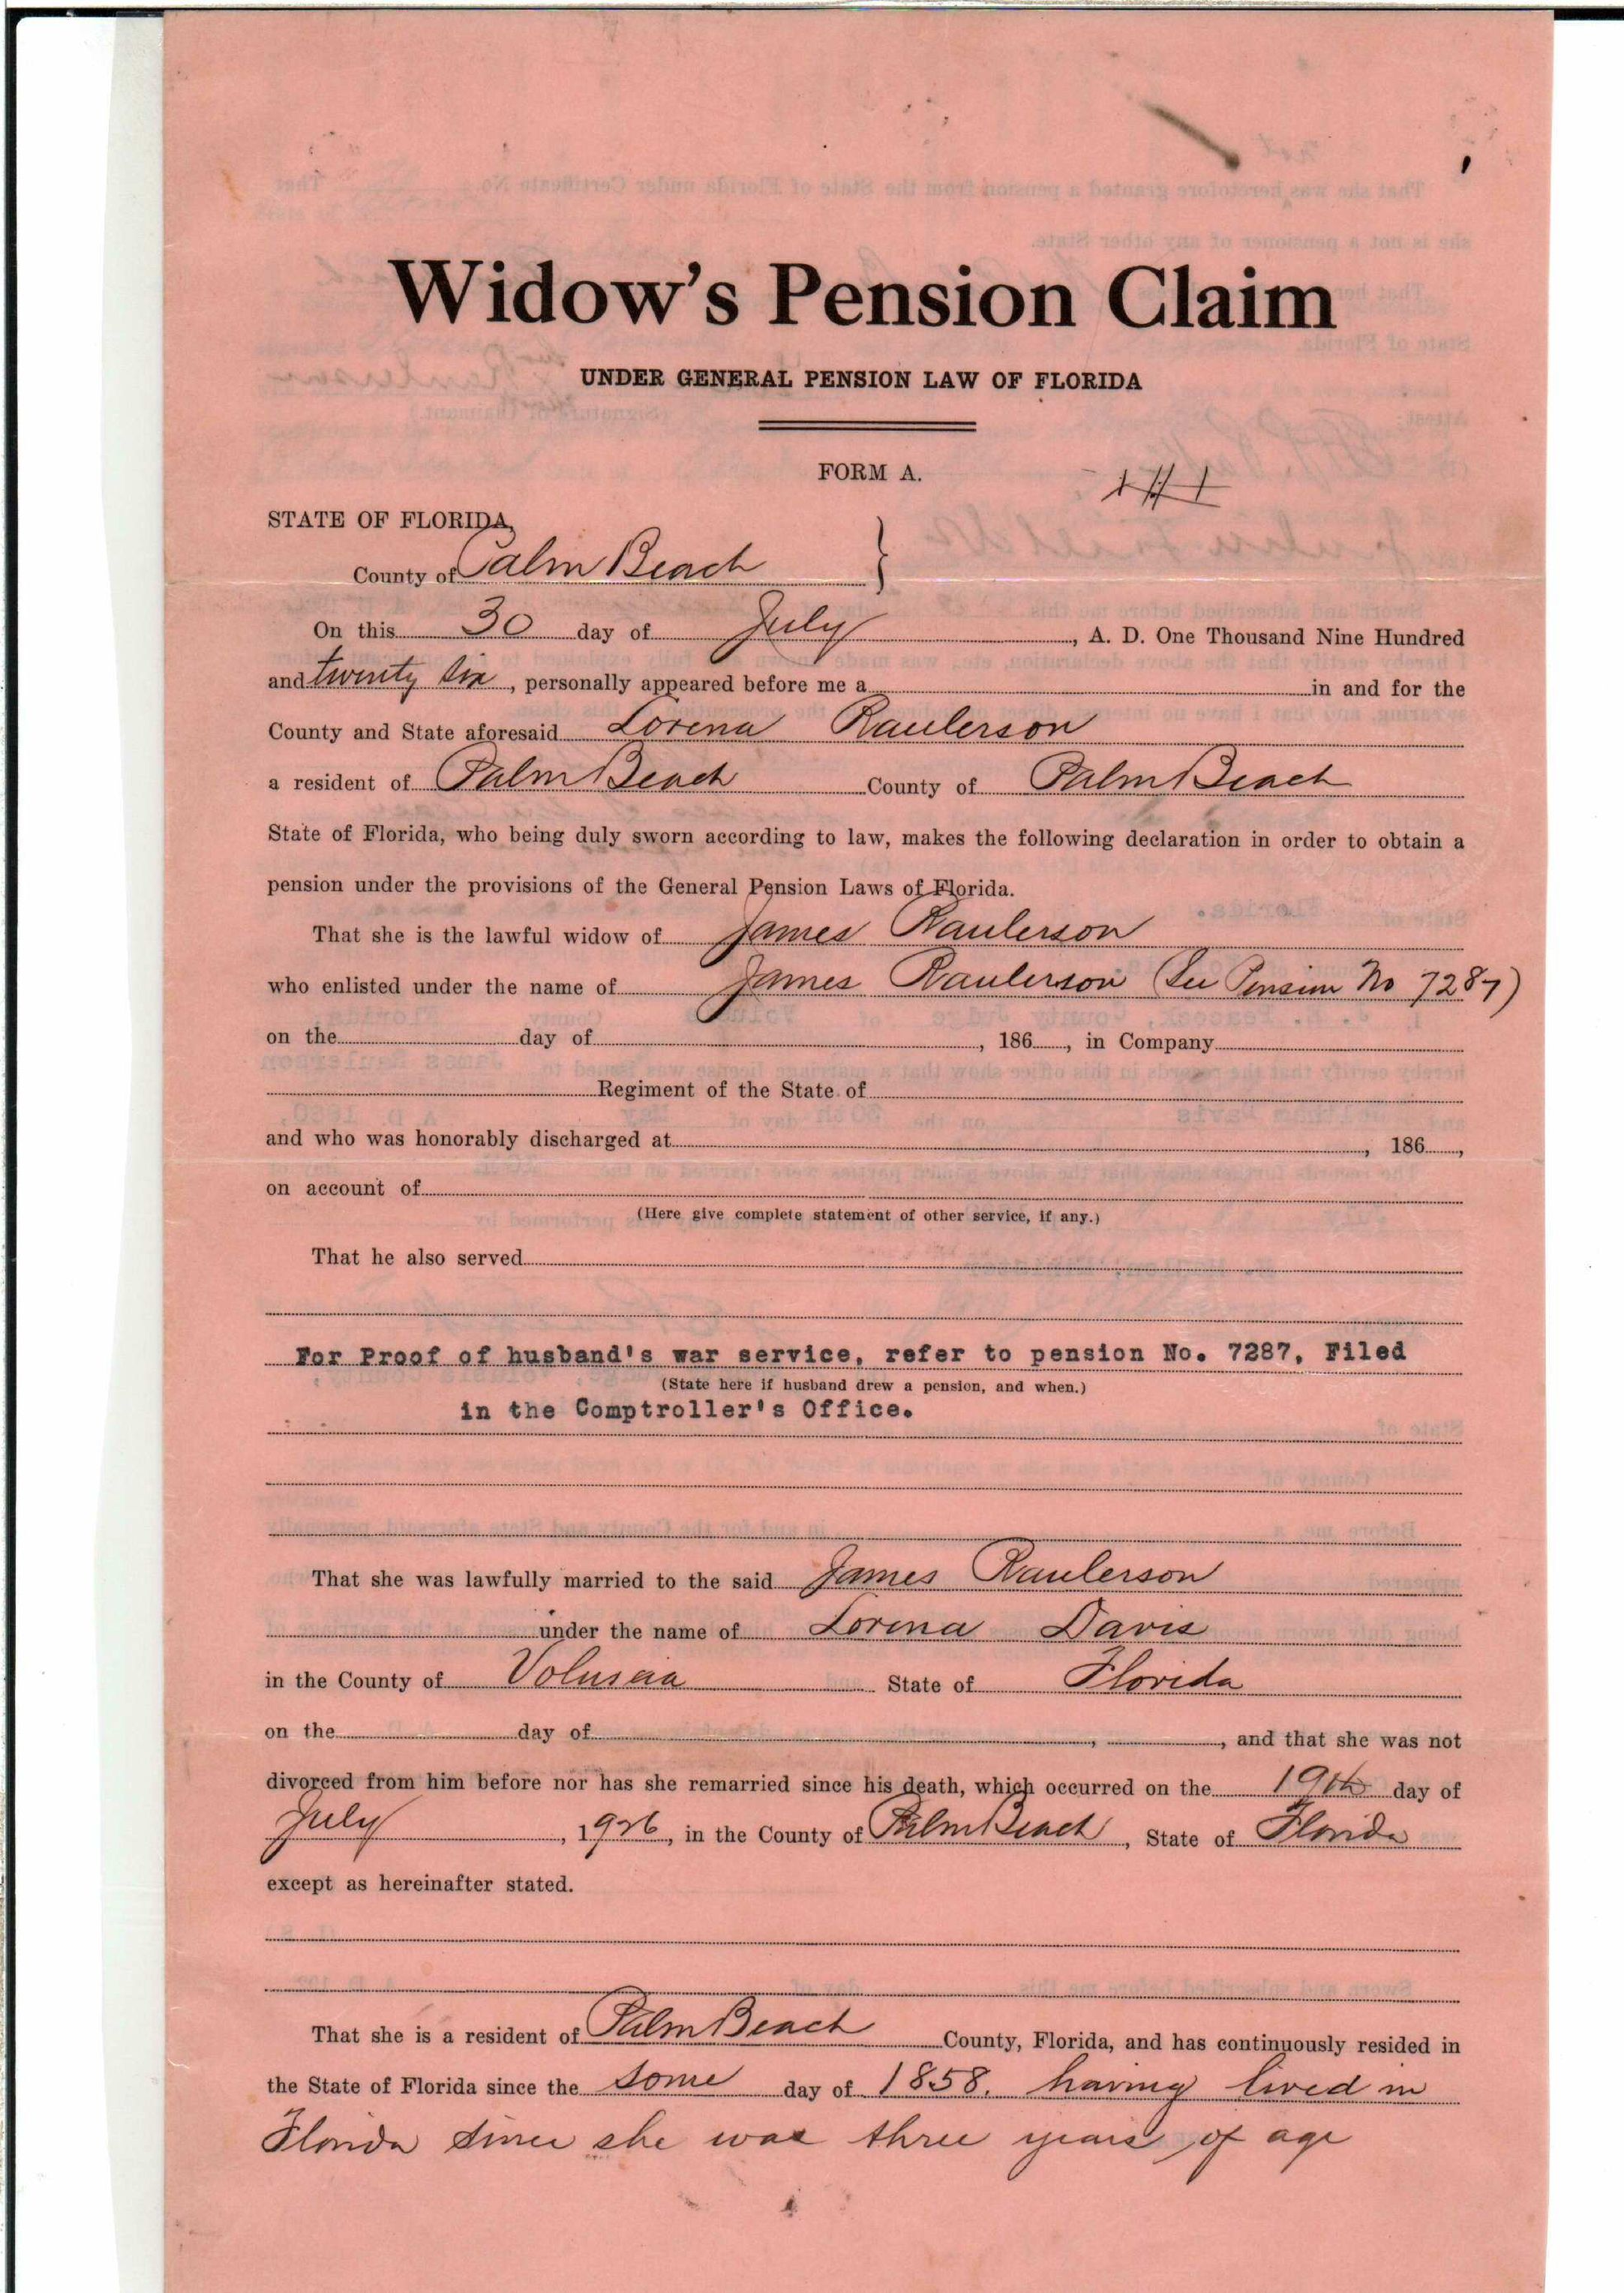 Widow's Pension Claim
UNDER GENERAL PENSION LAW OF FLORIDA
FORM A.
STATE OF FLORIDA,
County of Palm Beach }
On this 30 day of July, A. D. One Thousand Nine Hundred
and twenty six, personally appeared before me a in and for the
County and State aforesaid Lorena Raulerson
a resident of Palm Beach County of Palm Beach
State of Florida, who being duly sworn according to law, makes the following declaration in order to obtain a
pension under the provisions of the General Pension Laws of Florida.
That she is the lawful widow of James Raulerson
who enlisted under the name of James Raulerson (See Pension No 7287)
on the day of , 186 , in Company
Regiment of the State of
and who was honorably discharged at , 186 ,
on account of
(Here give complete statement of other service, if any.)
That he also served
For Proof of husband's war service, refer to pension No. 7287, Filed
(State here if husband drew a pension, and when.)
in the Comptroller's Office.
That she was lawfully married to the said James Raulerson
under the name of Lorena Davis
in the County of Voluscia State of Florida
on the day of , , and that she was not
divorced from him before nor has she remarried since his death, which occurred on the 19th day of
July, 1926, in the County of Palm Beach, State of Florida
except as hereinafter stated.
That she is a resident of Palm Beach County, Florida, and has continuously resided in
the State of Florida since the some day of 1858. having lived in
Florida since she was three years of age